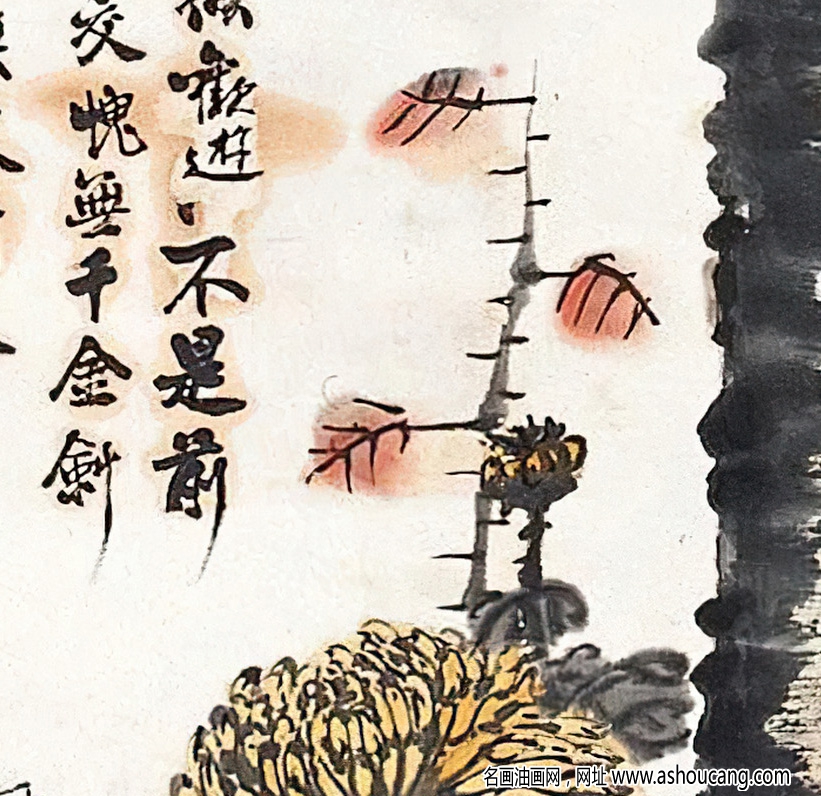 歡遊、不是前
交愧無千金劍
名画油画网，网址 www.ashoucang.com